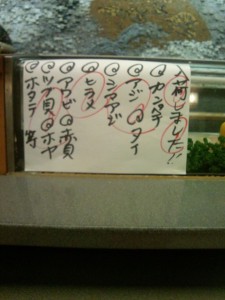 入荷しました!!
◎カンパチ
◎アジ ◎タイ
◎シマアジ
◎ヒラメ
◎アワビ ◎赤貝
◎ツブ貝 ◎ホヤ
◎ホタテ 等